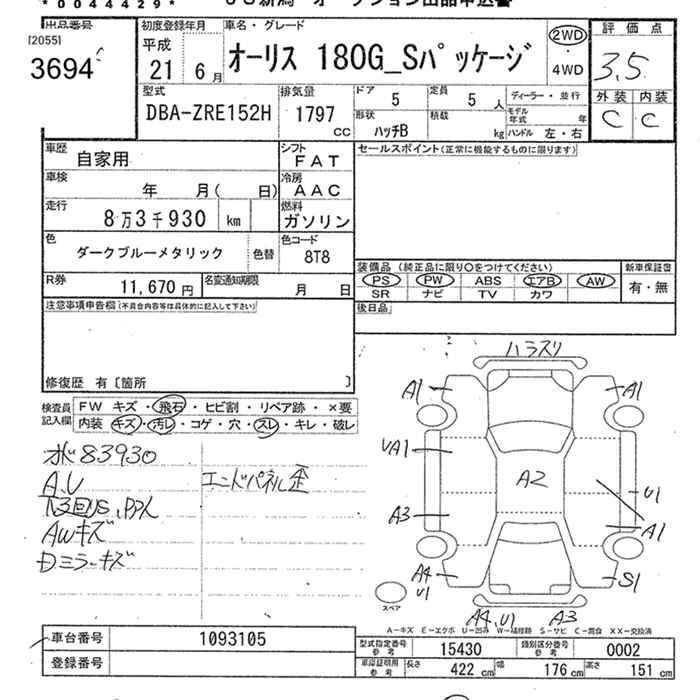 *0044429*
出品番号
[2055]
3694
初度登録年月
平成
21 6月
車名・グレード
オーリス 180G_Sパッケージ
2WD
4WD
評価点
3.5
外装 内装
C C
型式
DBA-ZRE152H
排気量
1797 CC
ドア 5
定員 5人
形状 ハッチB
積載 kg
ディーラー・並行
モデル年式 年
ハンドル 左・右
車歴
自家用
シフト
FAT
セールスポイント(正常に機能するものに限ります)
車検
年 月( 日)
冷房
AAC
走行
8万3千930 km
燃料
ガソリン
色
ダークブルーメタリック
色替
色コード
8T8
装備品 (純正品に限り○をつけてください)
PS PW ABS エアB AW
SR ナビ TV カワ
新車保証書
有・無
R券
11,670円
名変通知期限
月 日
後日品
注意事項申告欄(不具合内容等は具体的に記入して下さい)
修復歴 有〔箇所 〕
検査員記入欄
FW キズ・飛石・ヒビ割・リペア跡・×要
内装 キズ・汚レ・コゲ・穴・スレ・キレ・破レ
水83930
A,U
AWキズ
Dミラーキズ
エンドパネル歪
ハラスリ
A1 A1
UA1
A2
A3
U1
A1
A4
U1
S1
A4,U1 A3
スペア
A-キズ E-エクボ U-凹み W-補修跡 S-サビ C-腐食 XX-交換済
車台番号 1093105
登録番号
型式指定番号 参考 15430
類別区分番号 参考 0002
車庫証明用 参考 長さ 422 cm 幅 176 cm 高さ 151 cm